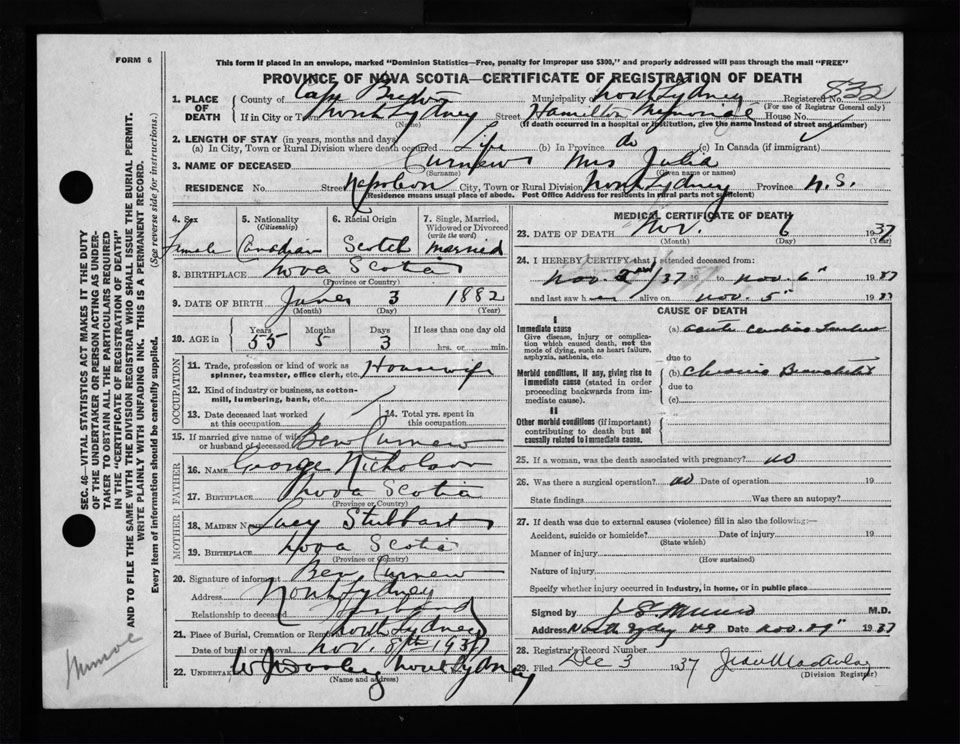 FORM 6
This form if placed in an envelope, marked "Dominion Statistics—Free, penalty for improper use $300," and properly addressed will pass through the mail "FREE"
PROVINCE OF NOVA SCOTIA—CERTIFICATE OF REGISTRATION OF DEATH
832
1. PLACE OF DEATH County of Cape Breton Municipality North Sydney Registered No.
(For use of Registrar General only)
If in City or Town North Sydney Street Hamilton Memorial House No.
(Name) (If death occurred in a hospital or institution, give the name instead of street and number)
2. LENGTH OF STAY (in years, months and days)
(a) In City, Town or Rural Division where death occurred Life (b) In Province do (c) In Canada (if immigrant)
3. NAME OF DECEASED Curnew Mrs Julia
(Surname) (Given name or names)
RESIDENCE No Street Napoleon City, Town or Rural Division North Sydney Province N.S.
(Residence means usual place of abode. Post Office Address for residents in rural parts not sufficient)
4. Sex 5. Nationality (Citizenship) 6. Racial Origin 7. Single, Married, Widowed or Divorced (write the word)
Female Canadian Scotch Married
8. BIRTHPLACE Nova Scotia
(Province or Country)
9. DATE OF BIRTH June 3 1882
(Month) (Day) (Year)
10. AGE in Years Months Days If less than one day old
55 5 3 hrs. or min.
OCCUPATION
11. Trade, profession or kind of work as spinner, teamster, office clerk, etc. Housewife
12. Kind of industry or business, as cotton-mill, lumbering, bank, etc.
13. Date deceased last worked at this occupation 14. Total yrs. spent in this occupation
15. If married give name of wife or husband of deceased Ben Curnew
FATHER
16. NAME George Nicholson
17. BIRTHPLACE Nova Scotia
(Province or Country)
MOTHER
18. MAIDEN NAME Lucy Stubbard
19. BIRTHPLACE Nova Scotia
(Province or Country)
20. Signature of informant Ben Curnew
Address North Sydney
Relationship to deceased Husband
21. Place of Burial, Cremation or Removal North Sydney
Date of burial or removal Nov. 8th 1937
22. UNDERTAKER North Sydney
(Name and address)
MEDICAL CERTIFICATE OF DEATH
23. DATE OF DEATH Nov. 6 1937
(Month) (Day) (Year)
24. I HEREBY CERTIFY that I attended deceased from:
Nov. 2nd/37 19 to Nov. 6" 1937
and last saw h er alive on Nov. 5" 1937
CAUSE OF DEATH
I
Immediate cause (a) acute cardiac
Give disease, injury or complication which caused death, not the mode of dying, such as heart failure, asphyxia, asthenia, etc.
due to
Morbid conditions, if any, giving rise to immediate cause (stated in order proceeding backwards from immediate cause). (b) Chronic Bronchitis
due to
(c)
II
Other morbid conditions (if important) contributing to death but not causally related to immediate cause.
25. If a woman, was the death associated with pregnancy? no
26. Was there a surgical operation? no Date of operation 19
State findings Was there an autopsy?
27. If death was due to external causes (violence) fill in also the following:—
Accident, suicide or homicide? Date of injury 19
(State which)
Manner of injury
(How sustained)
Nature of injury
Specify whether injury occurred in industry, in home, or in public place
Signed by Munro M.D.
Address North Sydney NS Date Nov. 1937
28. Registrar's Record Number
29. Filed Dec 3 1937
(Division Registrar)
SEC. 46—VITAL STATISTICS ACT MAKES IT THE DUTY
OF THE UNDERTAKER OR PERSON ACTING AS UNDER-
TAKER TO OBTAIN ALL THE PARTICULARS REQUIRED
IN THE "CERTIFICATE OF REGISTRATION OF DEATH"
AND TO FILE THE SAME WITH THE DIVISION REGISTRAR WHO SHALL ISSUE THE BURIAL PERMIT.
WRITE PLAINLY WITH UNFADING INK. THIS IS A PERMANENT RECORD.
Every item of information should be carefully supplied. (See reverse side for instructions.)
Munroe